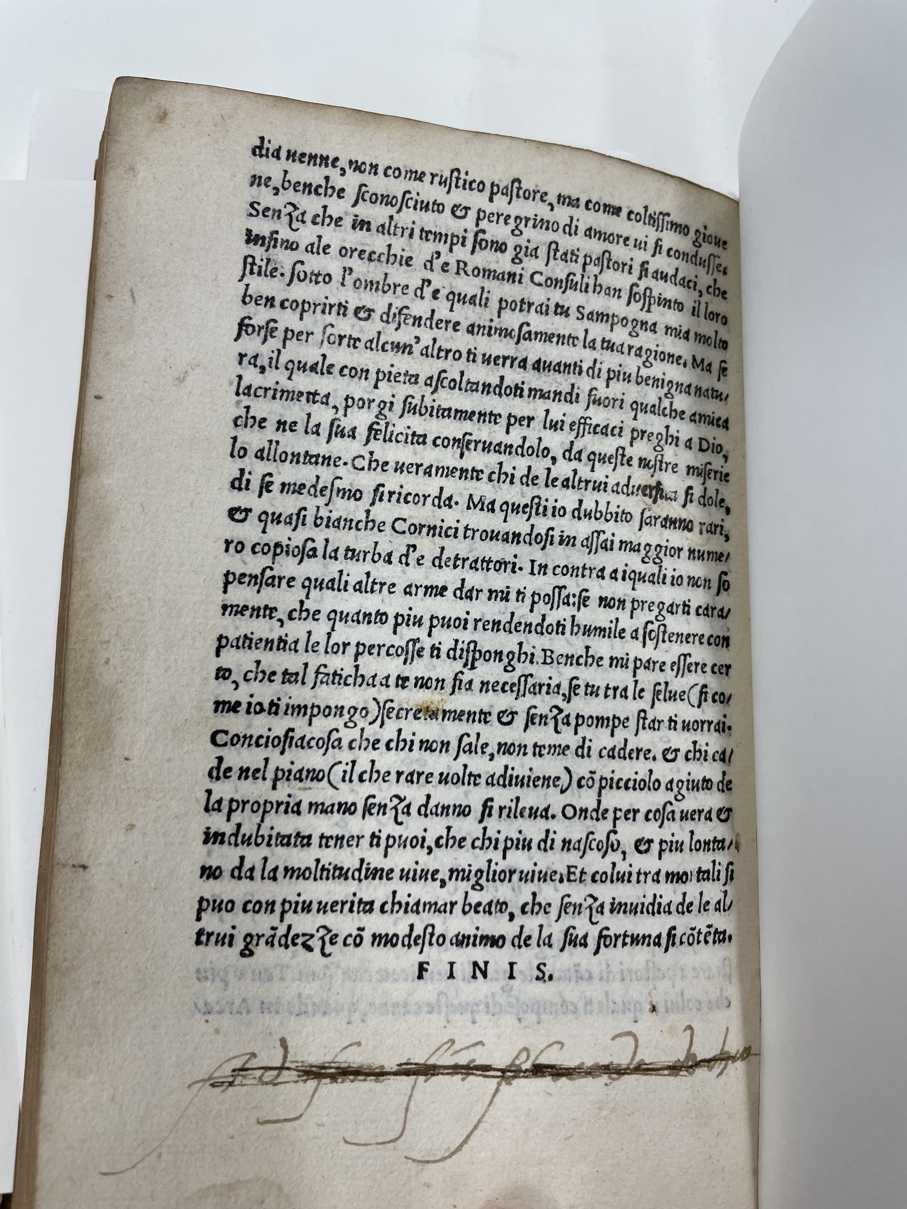 dia uenne, non come rustico pastore, ma come coltissimo gioue
ne, benche sconosciuto & peregrino di amore ui si condusse.
Senza che in altri tempi sono gia stati pastori si audaci, che
infino ale orecchie d'e Romani Consuli han sospinto il loro
stile: sotto l'ombre d'e quali potrai tu Sampogna mia molto
ben coprirti & difendere animosamente la tua ragione. Ma se
forse per sorte alcun'altro ti uerra auanti di piu benigna natu/
ra, il quale con pieta ascoltandoti mandi fuori qualche amica
lacrimetta, porgi subitamente per lui efficaci preghi a Dio,
che ne la sua felicita conseruandolo, da queste nostre miserie
lo allontane. Che ueramente chi de le altrui aduersita si dole,
di se medesmo si ricorda. Ma questi io dubbito saranno rari,
& quasi bianche Cornici trouandosi in assai maggior nume/
ro copiosa la turba d'e detrattori. In contra a i quali io non so
pensare quali altre arme dar mi ti possa: se non pregarti cara/
mente, che quanto piu puoi rendendoti humile a sostenere con
patientia le lor percosse ti disponghi. Benche mi pare essere cer
to, che tal faticha a te non fia necessaria, se tu tra le selue (si co/
me io ti impongo) secretamente & senza pompe star ti uorrai.
Conciosiacosa che chi non sale, non teme di cadere. & chi ca/
de nel piano (il che rare uolte adiuiene,) cõ picciolo agiuto de
la propria mano senza danno si rileua. Onde per cosa uera &
indubitata tener ti puoi, che chi piu di nascoso, & piu lonta/
no da la moltitudine uiue, miglior uiue. Et colui tra mortali si
puo con piu uerita chiamar beato, che senza inuidia de le al/
trui grãdezze cõ modesto animo de la sua fortuna si cõtẽta.
FINIS.